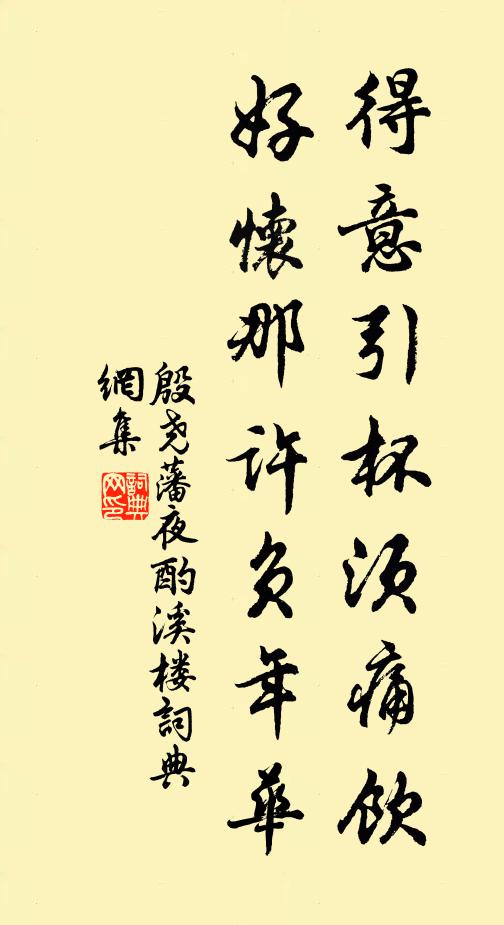 得意引杯须痛饮
好懷那許负年華
殷尧藩夜酌溪楼詞典
網集
詞典
网印